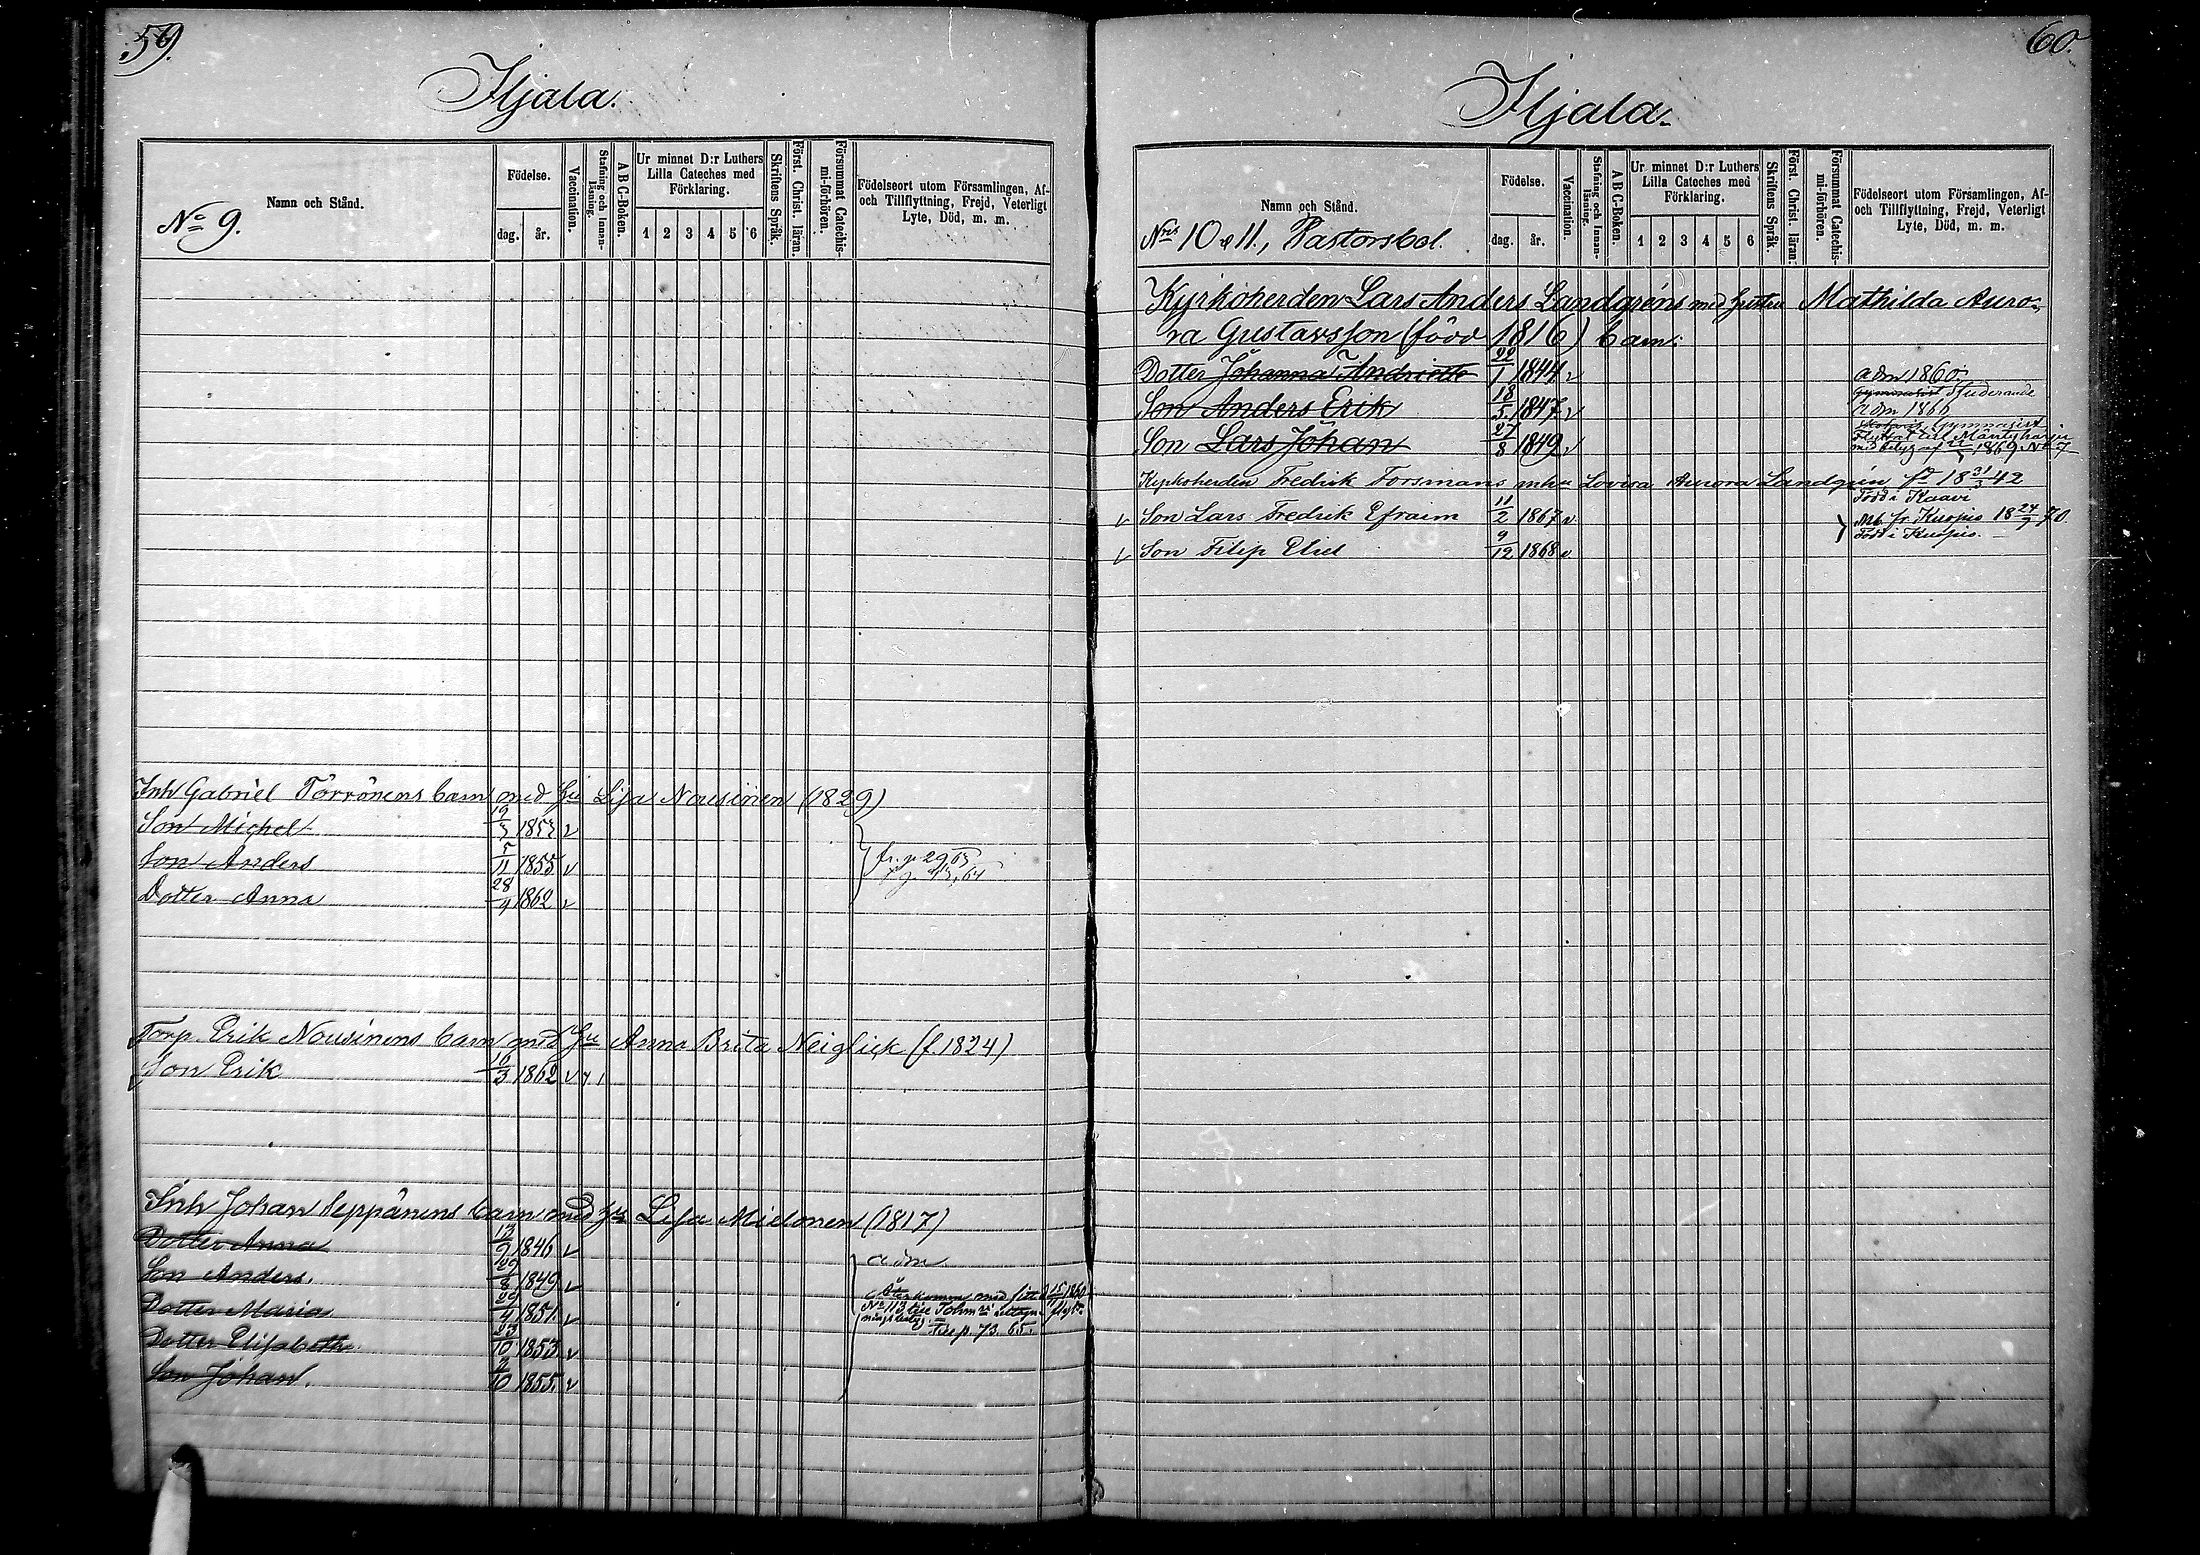 59.
Hjala.
Namn och Stånd.
No 9.
Födelse.
dag.
år.
Vaccination.
Stafning och Innan-
läsning.
A B C-Boken.
Ur minnet D:r Luthers
Lilla Cateches med
Förklaring.
1 2 3 4 5 6
Skriftens Språk.
Först. Christ. läran.
Försummat Catechis-
mi-förhören.
Födelseort utom Församlingen, Af-
och Tillflyttning, Frejd, Veterligt
Lyte, Död, m. m.
Inh Gabriel Törrönens barn med hu Lisa Nousinen (1829)
Son Michel 19/3 1853 v
Son Anders 5/11 1855 v
fr. p 29 65
Dotter Anna 28/9 1862 v
Torp. Erik Nousinens barn med hu Anna Brita Neiglick (f. 1824)
v Son Erik 16/3 1862 v
Inh Johan Seppänens barn med hu Lisa Mielonen (1817)
Dotter Anna 12/9 1846 v
adm
Son Anders. 29/8 1849 v
Återkomen med
No 113
Dotter Maria 29/4 1851. v
Fl. p. 73. 65.
Dotter Elisabeth 23/10 1853 v
Son Johan. 2/10 1855. v
60.
Hjala.
Namn och Stånd.
Nris 10 & 11, Pastorsbol.
Födelse.
dag.
år.
Vaccination.
Stafning och Innan-
läsning.
A B C-Boken.
Ur minnet D:r Luthers
Lilla Cateches med
Förklaring.
1 2 3 4 5 6
Skriftens Språk.
Först. Christ. läran.
Försummat Catechis-
mi-förhören.
Födelseort utom Församlingen, Af-
och Tillflyttning, Frejd, Veterligt
Lyte, Död, m. m.
Kyrkoherden Lars Anders Landgréns med hustru Mathilda Auro-
ra Gustavsson (född 1816) barn:
Dotter Johanna Andriette 22/1 1844 v adm 1860.
Gymnasist Studerande
Son Anders Erik 18/5 1847. v adm 1860
Gymnasist
Son Lars Johan 27/8 1849 v Flyttat till Mäntyharju
med betyg af 1869 No 7
Kyrkoherden Fredrik Forsmans m hu Lovisa Aurora Landgrén fd 18 31/3 42
Född i Kaavi
v Son Lars Fredrik Efraim 11/2 1867 v
Atb. fr. Kuopio 18 24/7 70
Född i Kuopio.
v Son Filip Eliel 9/12 1868 v